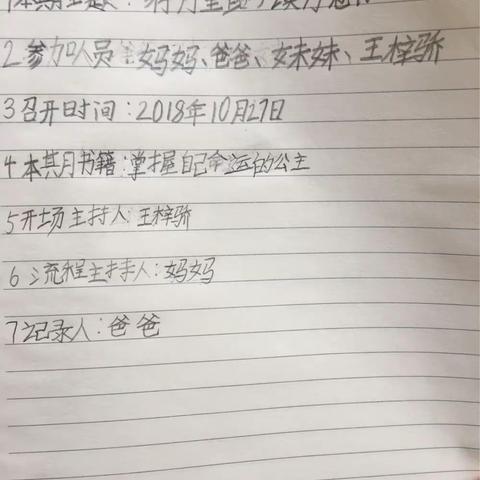 2参加人员:妈妈、爸爸、妹妹、王梓骄
3召开日时间:2018年10月27日
4本其月书籍:掌握自己命运的公主
5开场主持人:王梓骄
6流程主持人:妈妈
7记录人:爸爸